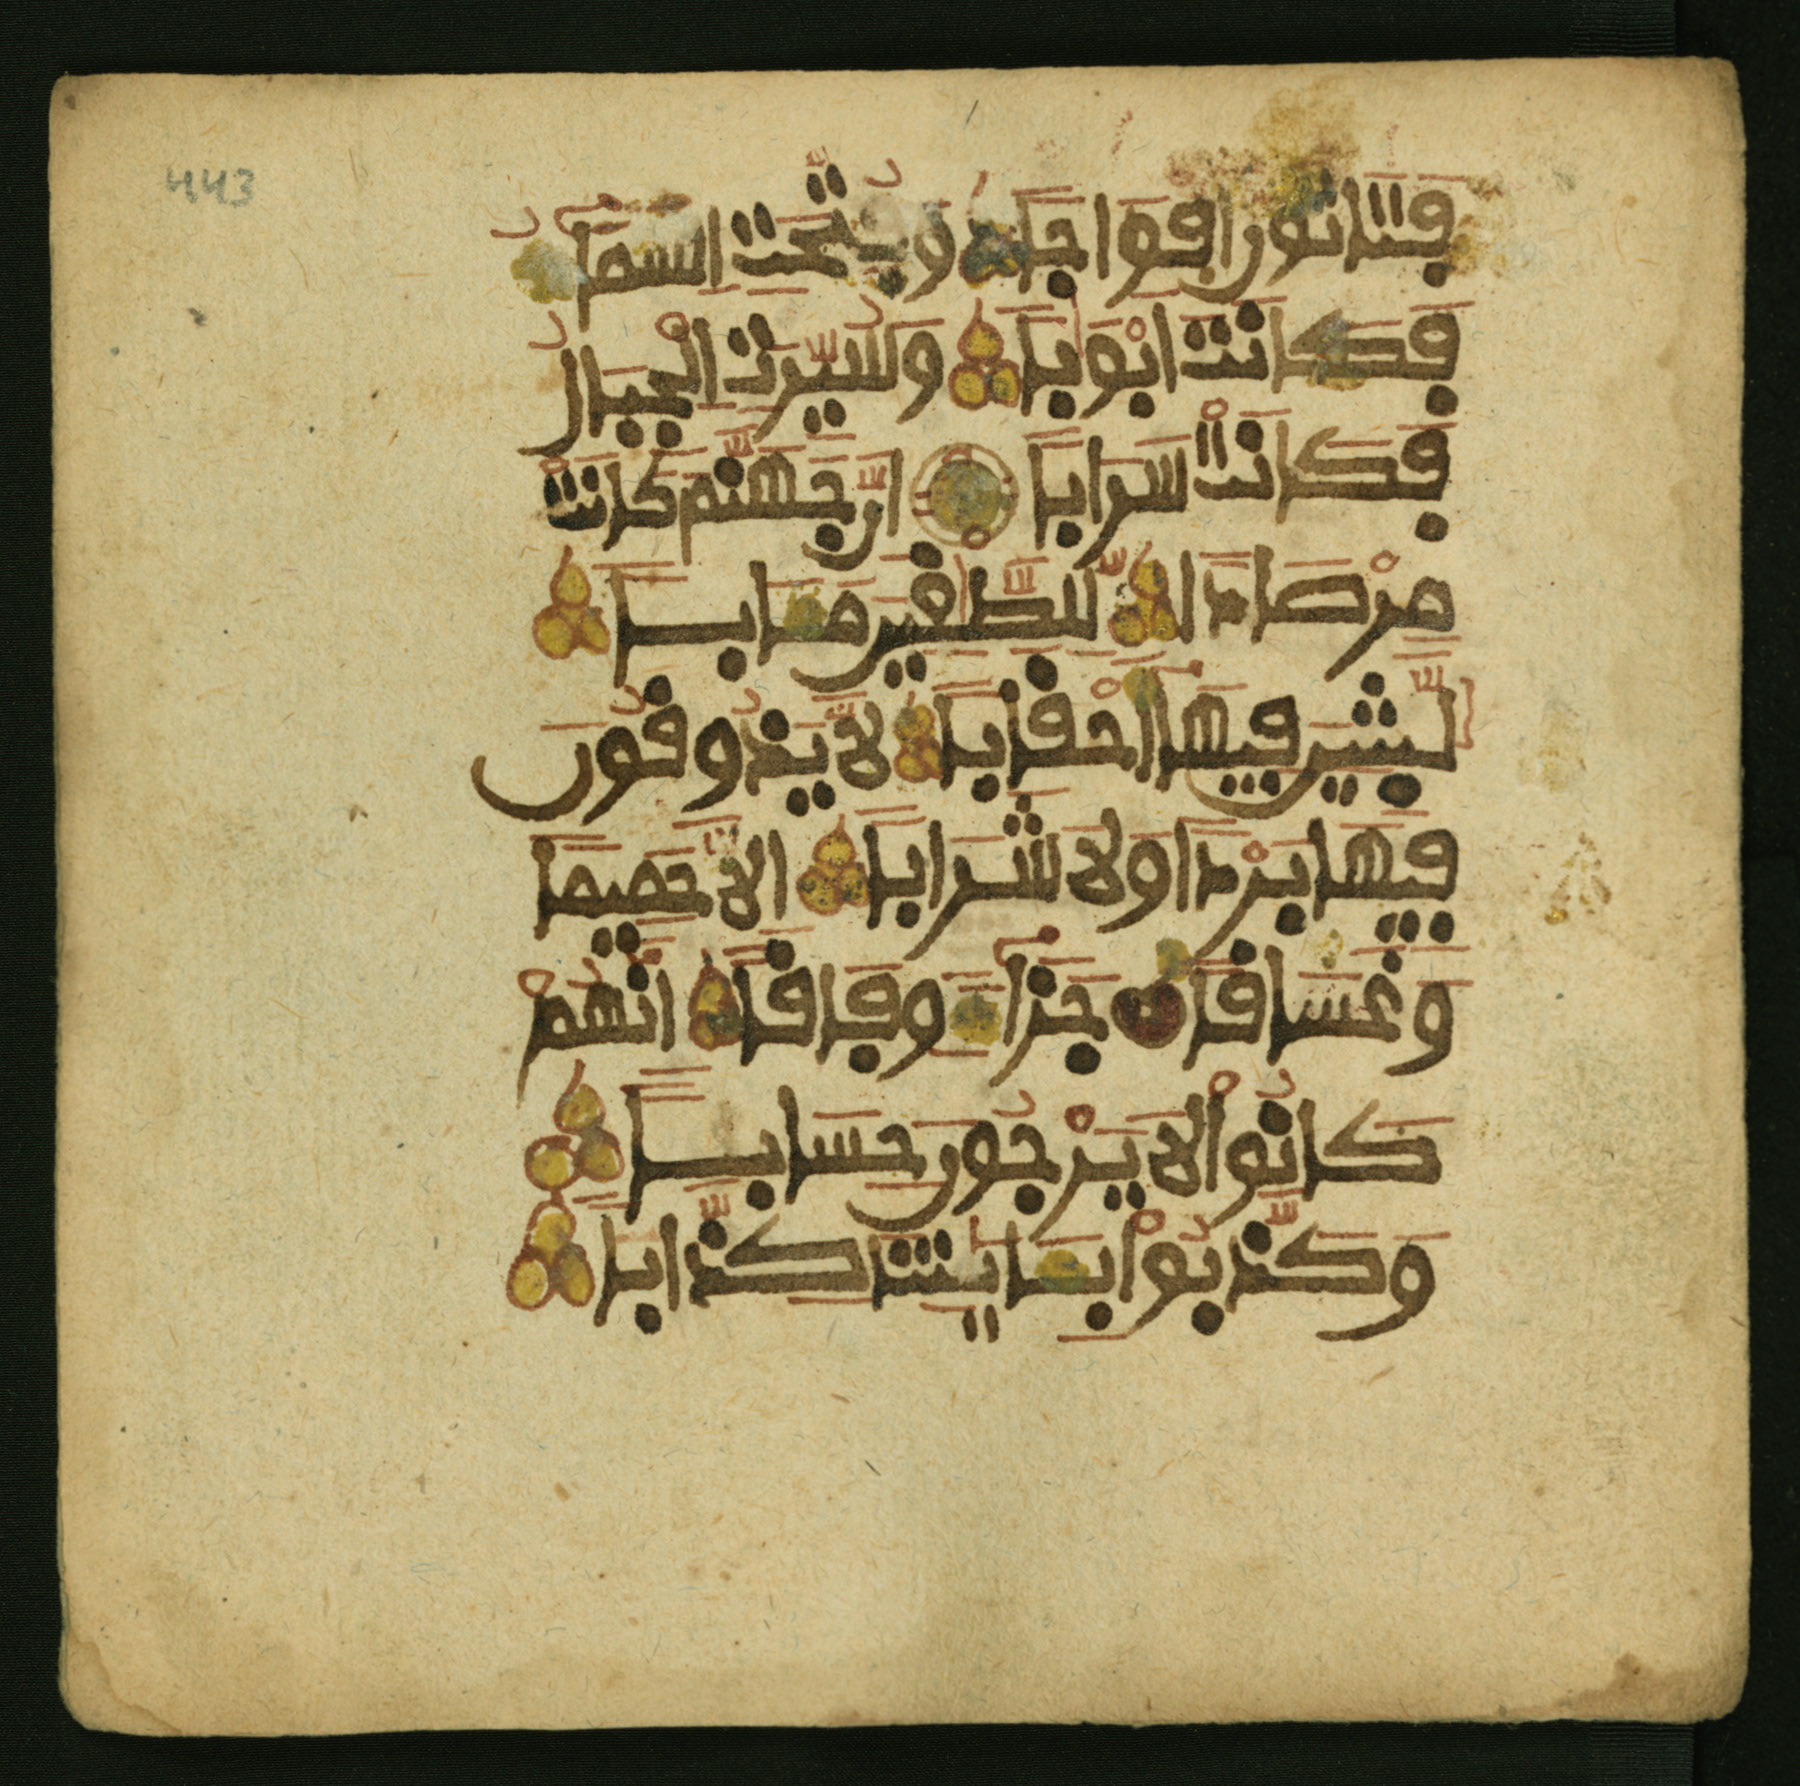 443
فتاتون افواجا وفتحت السما
فكانت ابوبا وسيرت الجبال
فكانت سرابا ان جهنم كانت
مرصادا للطغين مابا
لبثين فيها احقابا لا يذوقون
فيها بردا ولا شرابا الا حميما
وغساقا جزا وفاقا انهم
كانوا لا يرجون حسابا
وكذبوا بايتنا كذابا